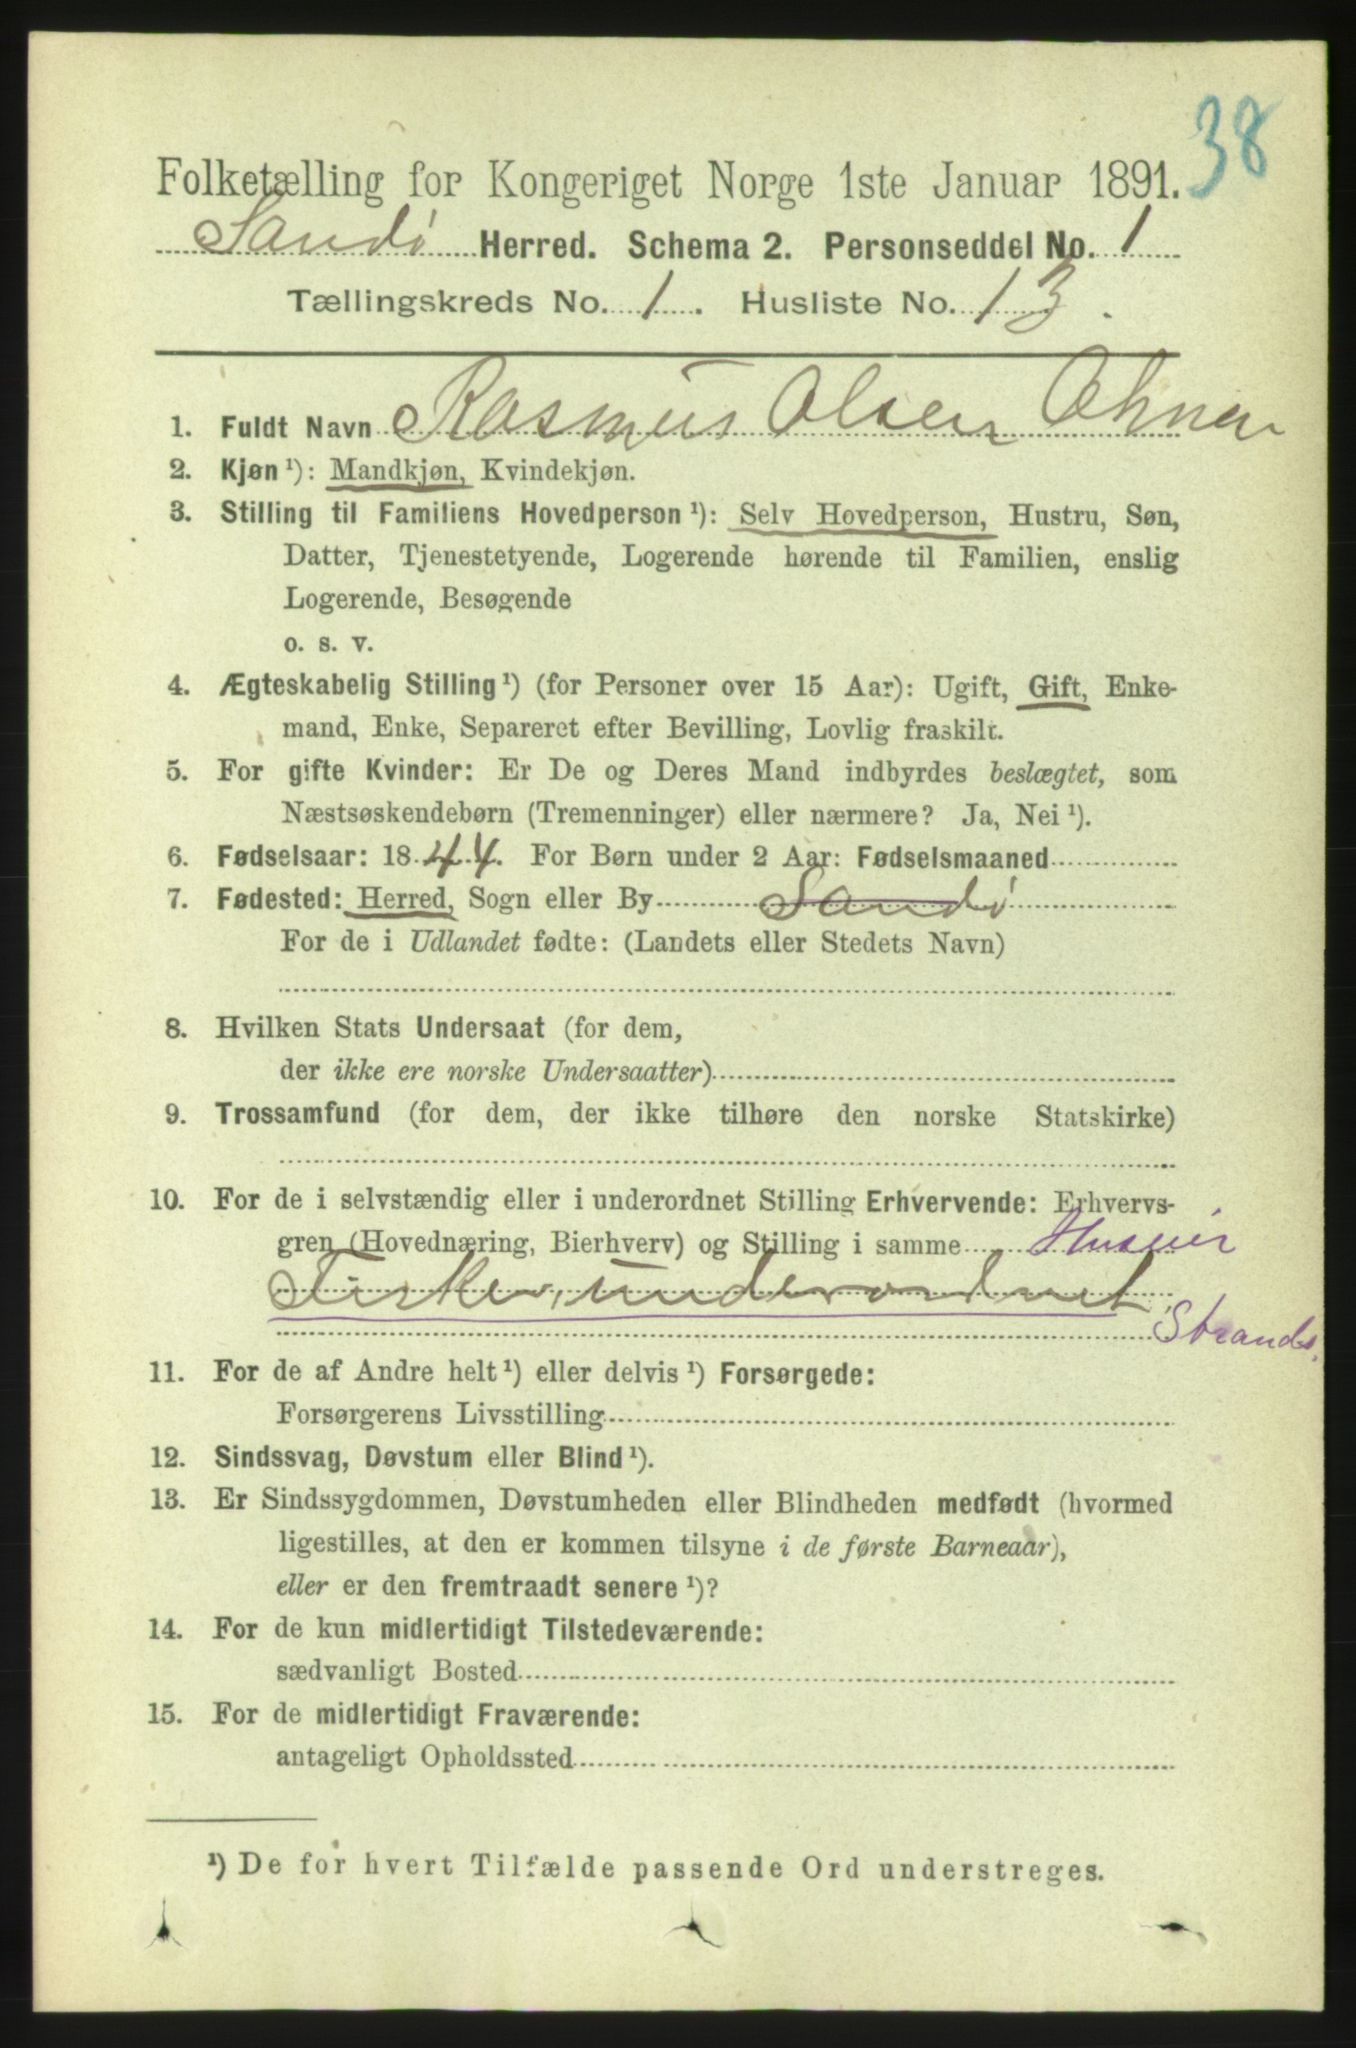 38
Folketælling for Kongeriget Norge 1ste Januar 1891.
Sandø Herred. Schema 2. Personseddel No. 1
Tællingskreds No. 1. Husliste No. 13.
1. Fuldt Navn Rasmus Olsen
2. Kjøn ¹): Mandkjøn, Kvindekjøn.
3. Stilling til Familiens Hovedperson ¹): Selv Hovedperson, Hustru, Søn,
Datter, Tjenestetyende, Logerende hørende til Familien, enslig
Logerende, Besøgende
o. s. v.
4. Ægteskabelig Stilling ¹) (for Personer over 15 Aar): Ugift, Gift, Enke-
mand, Enke, Separeret efter Bevilling, Lovlig fraskilt.
5. For gifte Kvinder: Er De og Deres Mand indbyrdes beslægtet, som
Næstsøskendebørn (Tremenninger) eller nærmere? Ja, Nei ¹).
6. Fødselsaar: 1844. For Børn under 2 Aar: Fødselsmaaned
7. Fødested: Herred, Sogn eller By Sandø
For de i Udlandet fødte: (Landets eller Stedets Navn)
8. Hvilken Stats Undersaat (for dem,
der ikke ere norske Undersaatter)
9. Trossamfund (for dem, der ikke tilhøre den norske Statskirke)
10. For de i selvstændig eller i underordnet Stilling Erhvervende: Erhvervs-
gren (Hovednæring, Bierhverv) og Stilling i samme Huseier
Fisker, underordnet
Strands.
11. For de af Andre helt ¹) eller delvis ¹) Forsørgede:
Forsørgerens Livsstilling
12. Sindssvag, Døvstum eller Blind ¹).
13. Er Sindssygdommen, Døvstumheden eller Blindheden medfødt (hvormed
ligestilles, at den er kommen tilsyne i de første Barneaar),
eller er den fremtraadt senere ¹)?
14. For de kun midlertidigt Tilstedeværende:
sædvanligt Bosted
15. For de midlertidigt Fraværende:
antageligt Opholdssted
¹) De for hvert Tilfælde passende Ord understreges.